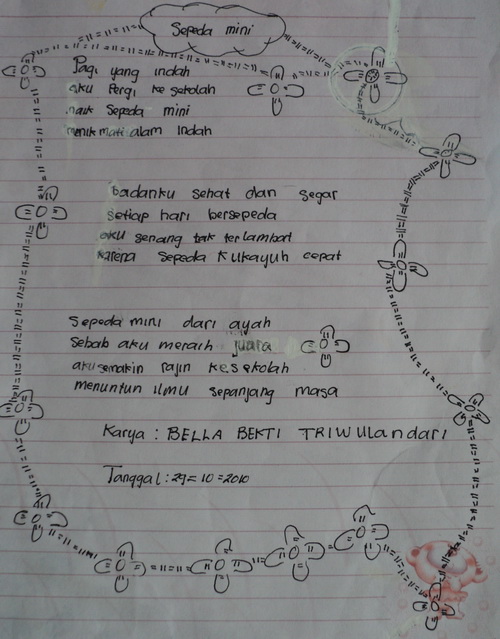 Sepeda mini
Pagi yang indah
aku Pergi ke sekolah
naik sepeda mini
menikmati alam indah
badanku sehat dan segar
setiap hari bersepeda
aku senang tak terlambat
karena sepeda kukayuh cepat
Sepeda mini dari ayah
sebab aku meraih juara
aku semakin rajin kesekolah
menuntun ilmu sepanjang masa
Karya : BELLA BEKTI TRIWUlandari
Tanggal : 29 = 10 = 2010